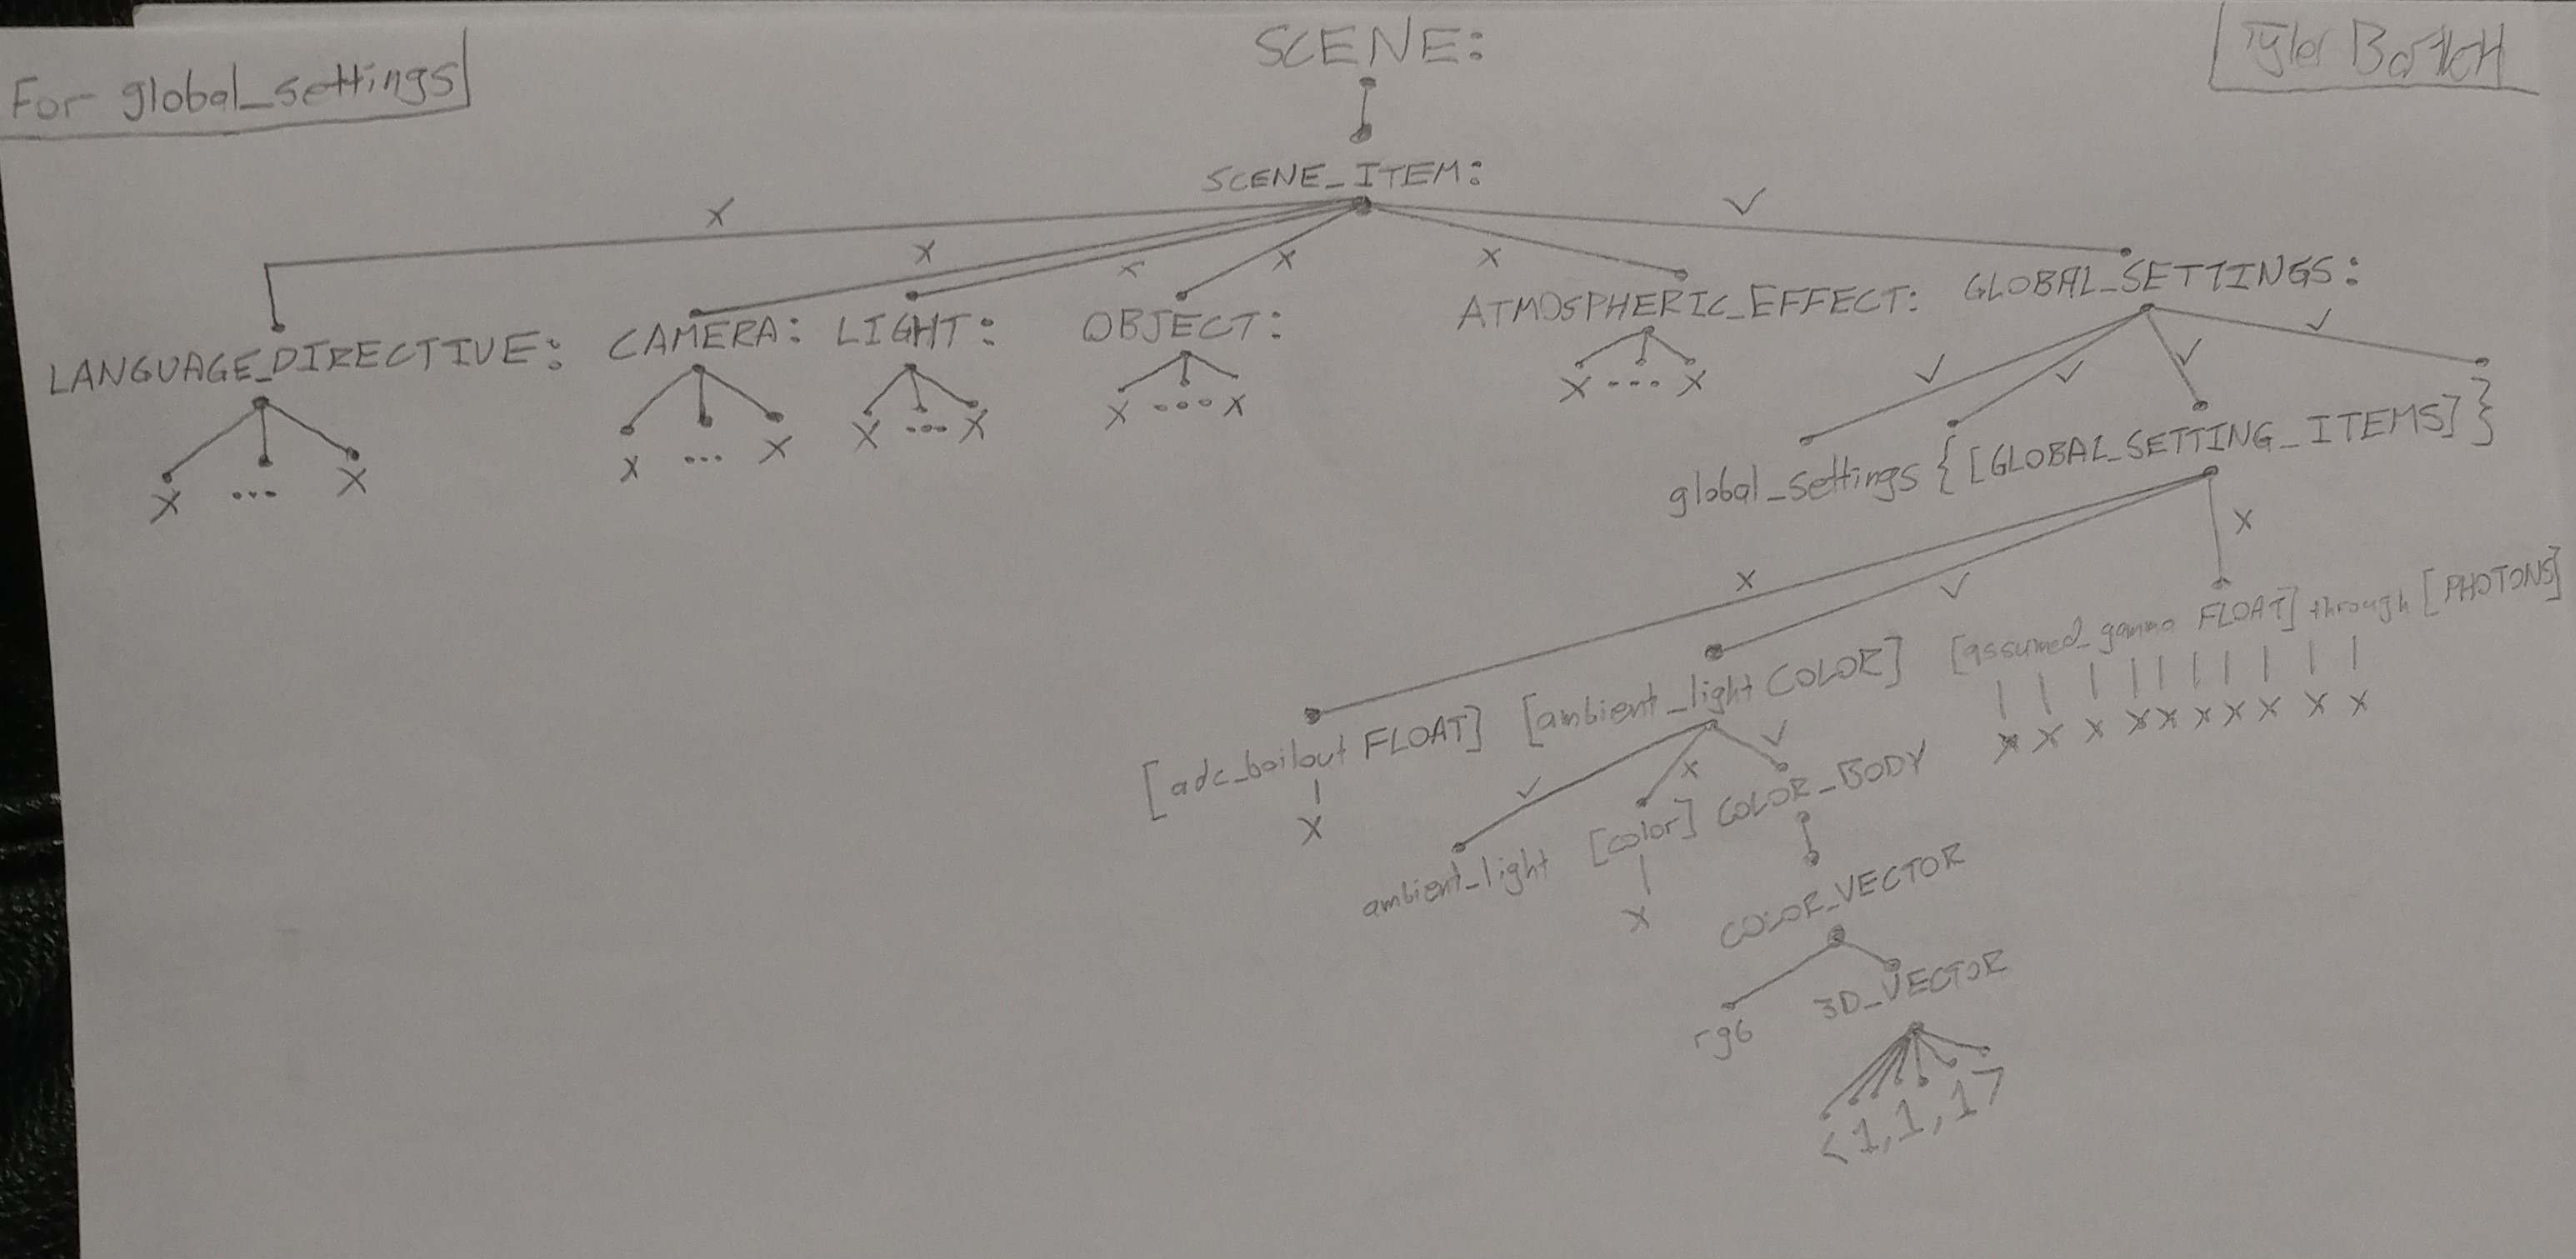 SCENE:
For global_settings
SCENE_ITEM:
X X X X X ✓
LANGUAGE_DIRECTIVE: CAMERA: LIGHT: OBJECT: ATMOSPHERIC_EFFECT: GLOBAL_SETTINGS:
✓ ✓ ✓ ✓
X ... X X ... X X ... X X ... X X ... X
global_settings { [GLOBAL_SETTING_ITEMS] }
X ✓ X
[adc_bailout FLOAT] [ambient_light COLOR] [assumed_gamma FLOAT] through [PHOTONS]
X X X X X X X X X X X
✓ X ✓
ambient_light [color] COLOR_BODY
X
COLOR_VECTOR
rgb 3D_VECTOR
<1,1,1>